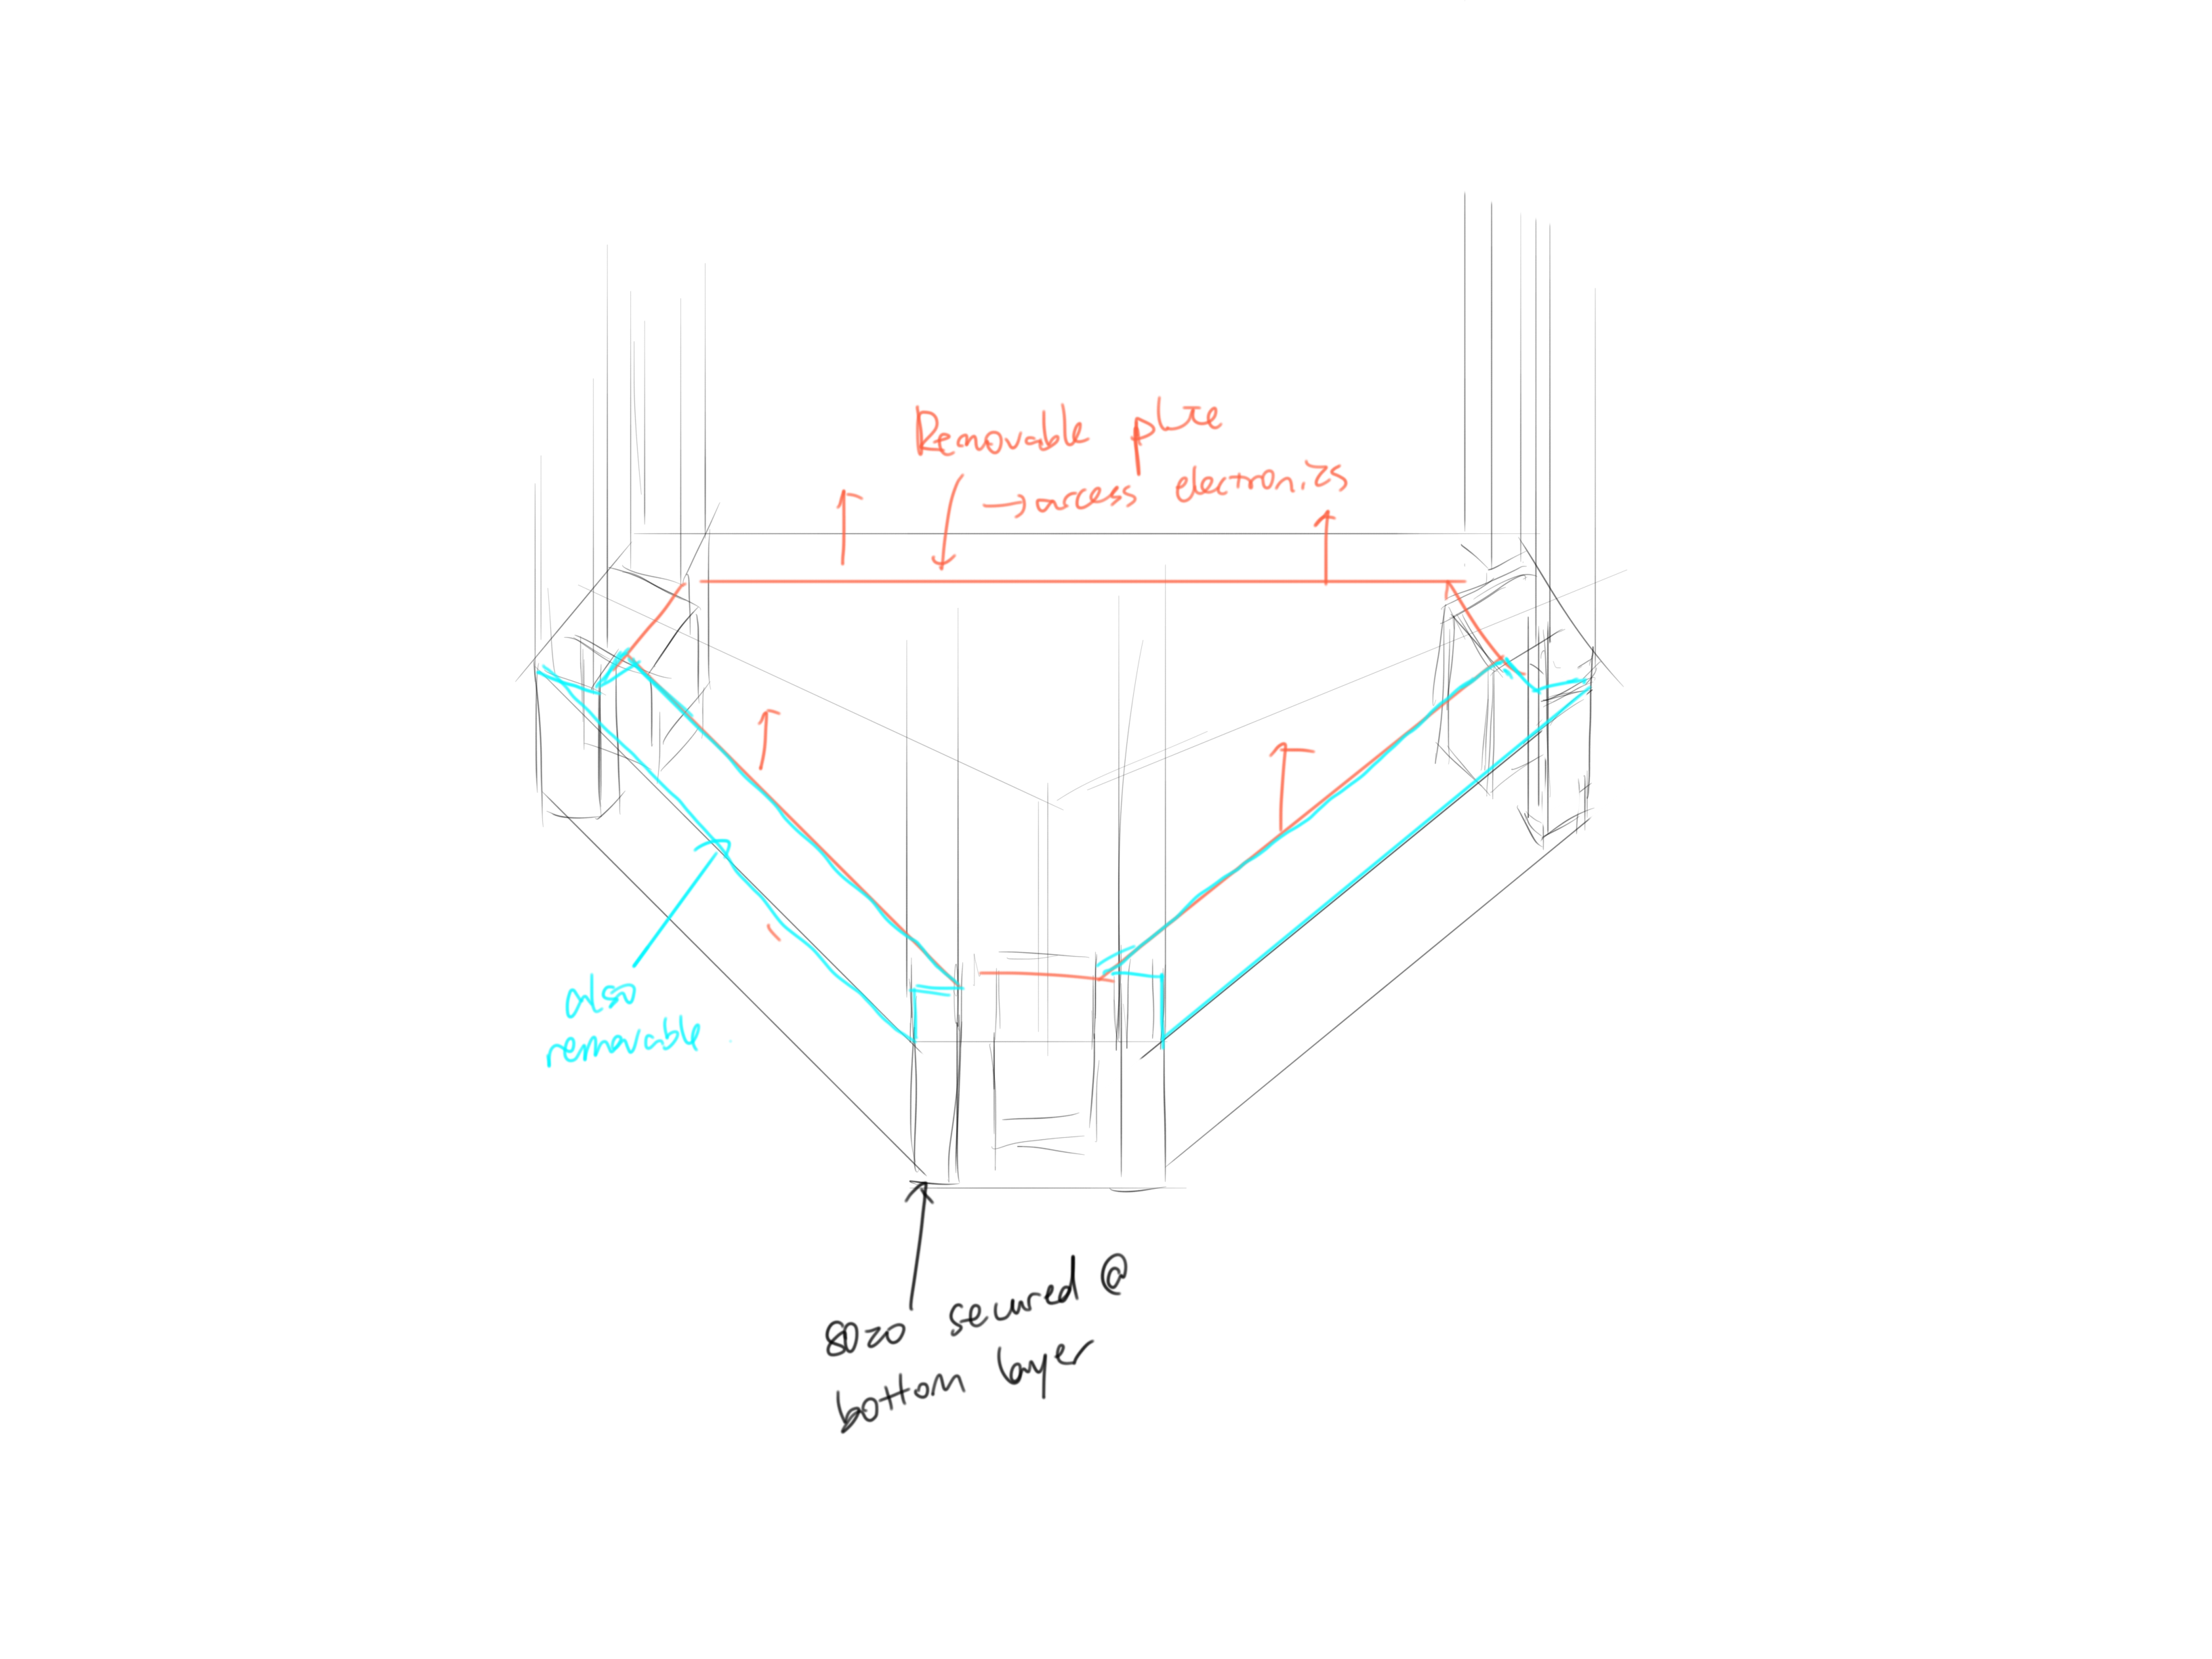 Removable plate
→ access electronics
also
removable.
8020 secured @
bottom layer